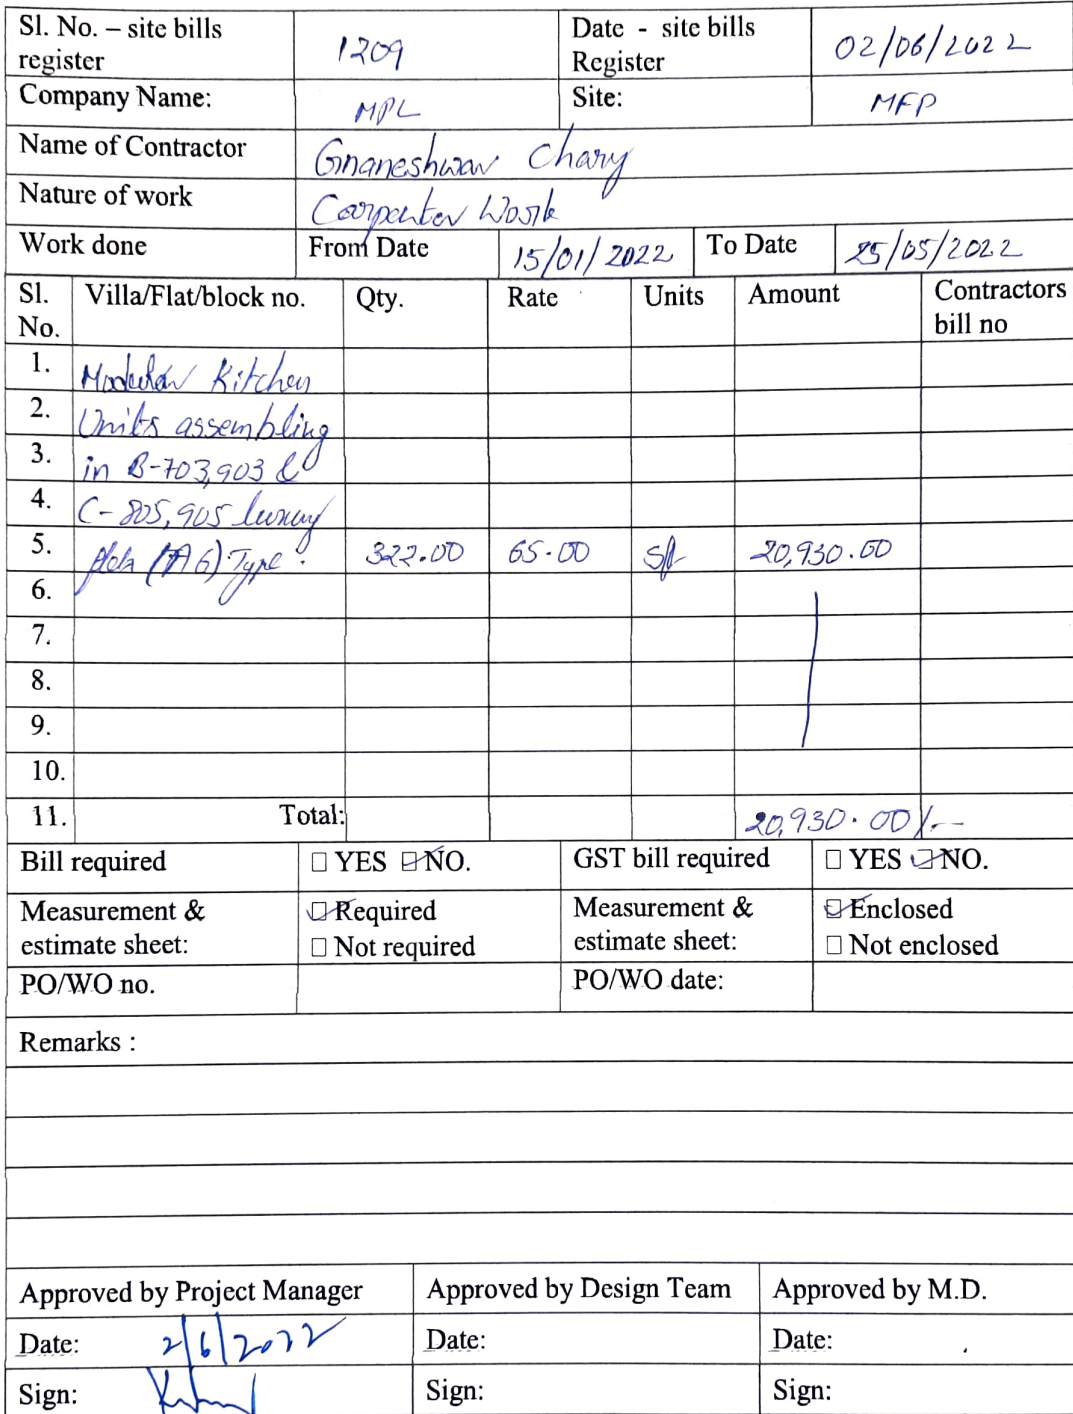 Sl. No. – site bills register 1209 Date - site bills Register 02/06/2022
Company Name: MPL Site: MFP
Name of Contractor Gnaneshwar Chary
Nature of work Carpenter Work
Work done From Date 15/01/2022 To Date 25/05/2022
Sl. No. Villa/Flat/block no. Qty. Rate Units Amount Contractors bill no
1. Modular Kitchen
2. Units assembling
3. in B-703,903 &
4. C-805,905 luxury
5. (A6) Type. 322.00 65.00 sft 20,930.00
6.
7.
8.
9.
10.
11. Total: 20,930.00/-
Bill required □ YES ☑ NO. GST bill required □ YES ☑ NO.
Measurement & estimate sheet: ☑ Required □ Not required Measurement & estimate sheet: ☑ Enclosed □ Not enclosed
PO/WO no. PO/WO date:
Remarks :
Approved by Project Manager Approved by Design Team Approved by M.D.
Date: 2/6/2022 Date: Date:
Sign: Sign: Sign: